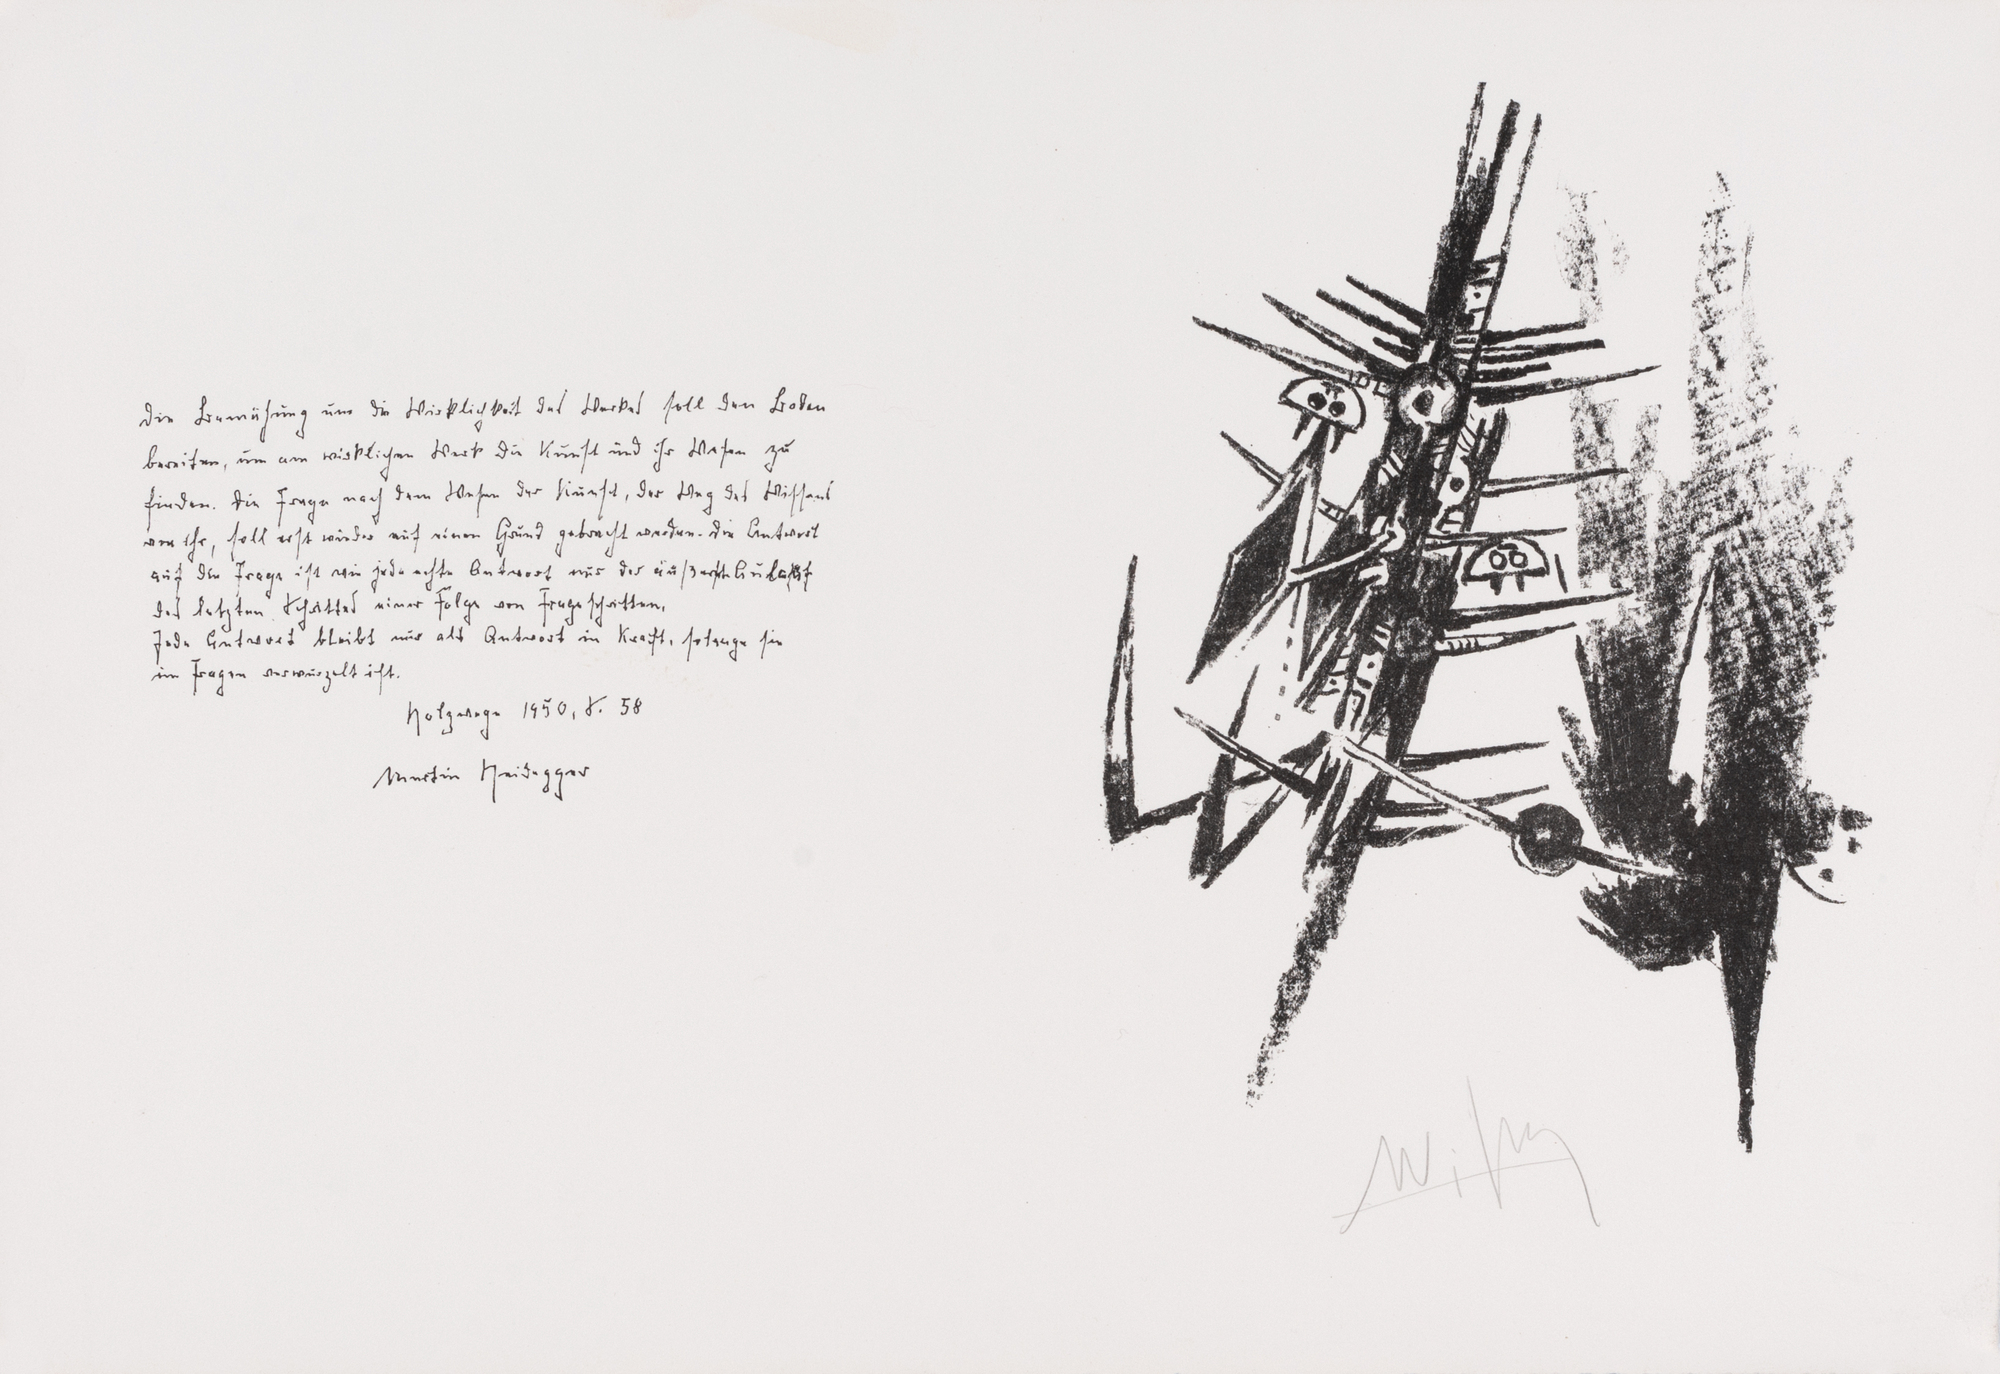 Die Bemühung um die Wirklichkeit des Werkes soll den Boden
bereiten, um am wirklichen Werk die Kunst und ihr Wesen zu
finden. Die Frage nach dem Wesen der Kunst, der Weg des Wissens
von ihr, soll erst wieder auf einen Grund gebracht werden. Die Antwort
auf die Frage ist wie jede echte Antwort nur der äußerste Auslauf
des letzten Schrittes einer Folge von Frageschritten.
Jede Antwort bleibt nur als Antwort in Kraft, solange sie
im Fragen verwurzelt ist.
Holzwege 1950, S. 58
Martin Heidegger